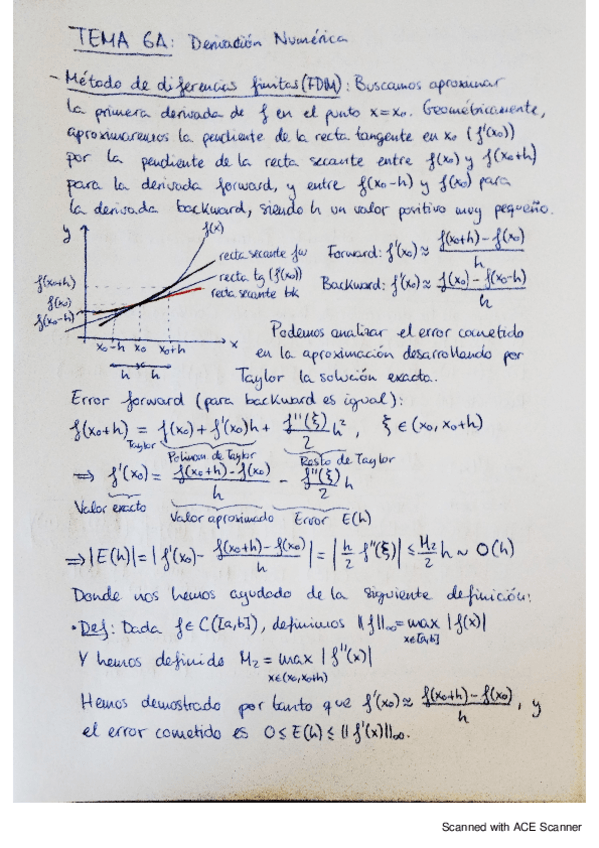 TEMA 6A: Derivación Numérica
- Método de diferencias finitas (FDM): Buscamos aproximar
la primera derivada de f en el punto x=x₀. Geométricamente,
aproximaremos la pendiente de la recta tangente en x₀ (f'(x₀))
por la pendiente de la recta secante entre f(x₀) y f(x₀+h)
para la derivada forward, y entre f(x₀-h) y f(x₀) para
la derivada backward, siendo h un valor positivo muy pequeño.
y
f(x)
recta secante fw
recta tg (f'(x₀))
recta secante bk
f(x₀+h)
f(x₀)
f(x₀-h)
x₀-h x₀ x₀+h x
h h
Forward: f'(x₀) ≈ (f(x₀+h) - f(x₀))/h
Backward: f'(x₀) ≈ (f(x₀) - f(x₀-h))/h
Podemos analizar el error cometido
en la aproximación desarrollando por
Taylor la solución exacta.
Error forward (para backward es igual):
f(x₀+h) = f(x₀) + f'(x₀)h + f''(ξ)/2 h², ξ ∈ (x₀, x₀+h)
Taylor Polinom de Taylor Resto de Taylor
⇒ f'(x₀) = (f(x₀+h) - f(x₀))/h - f''(ξ)/2 h
Valor exacto Valor aproximado Error E(h)
⇒ |E(h)| = |f'(x₀) - (f(x₀+h) - f(x₀))/h| = |h/2 f''(ξ)| ≤ M₂/2 h ~ O(h)
Donde nos hemos ayudado de la siguiente definición:
• Def: Dada f ∈ C([a,b]), definimos ||f||∞ = max |f(x)|
x∈[a,b]
Y hemos definido M₂ = max |f''(x)|
x∈(x₀,x₀+h)
Hemos demostrado por tanto que f'(x₀) ≈ (f(x₀+h) - f(x₀))/h, y
el error cometido es 0 ≤ E(h) ≤ ||f'(x)||∞.
Scanned with ACE Scanner